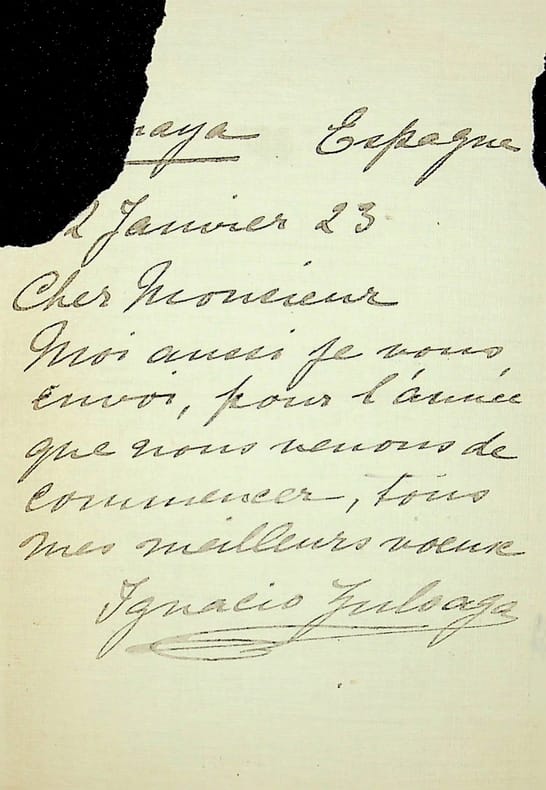 maya Espagne
2 Janvier 23
Cher Monsieur
Moi aussi je vous
envoi, pour l'année
que nous venons de
commencer, tous
mes meilleurs voeux
Ignacio Zuloaga